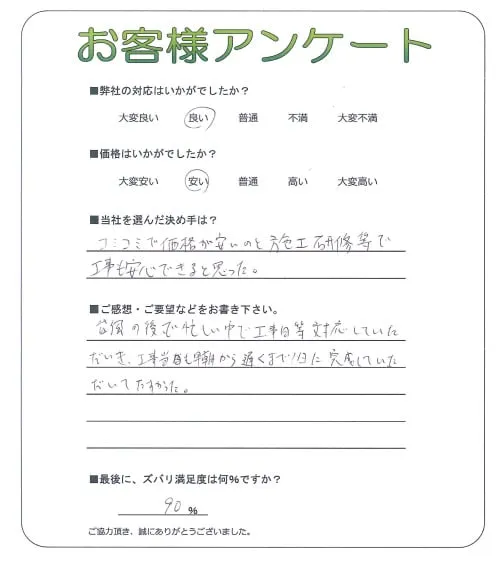 お客様アンケート
■弊社の対応はいかがでしたか？
大変良い 良い 普通 不満 大変不満
■価格はいかがでしたか？
大変安い 安い 普通 高い 大変高い
■当社を選んだ決め手は？
コミコミで価格が安いのと施工研修等で
工事も安心できると思った。
■ご感想・ご要望などをお書き下さい。
台風の後で忙しい中で工事日等対応していた
だいき、工事当日も早朝から遅くまで1日に完成していた
だいてたすかった。
■最後に、ズバリ満足度は何%ですか？
90 %
ご協力頂き、誠にありがとうございました。